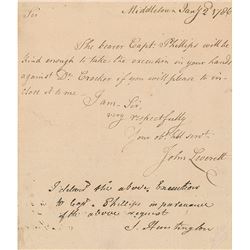 Middletown Jany 2
Sir
The bearer Capt. Phillips will be
kind enough to take the execution in your hands
against Dr. Crocker if you will please to in-
close it to me
I am Sir,
very respectfully
Your obt. servt.
John Leverett
I delivd the above, Execution
to Capt. Phillips in pursuance
of the above request
S. Huntington